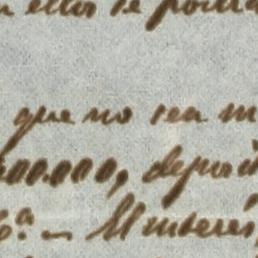 ellos se
que no sea m
00.000, deposit
6.a — El interés